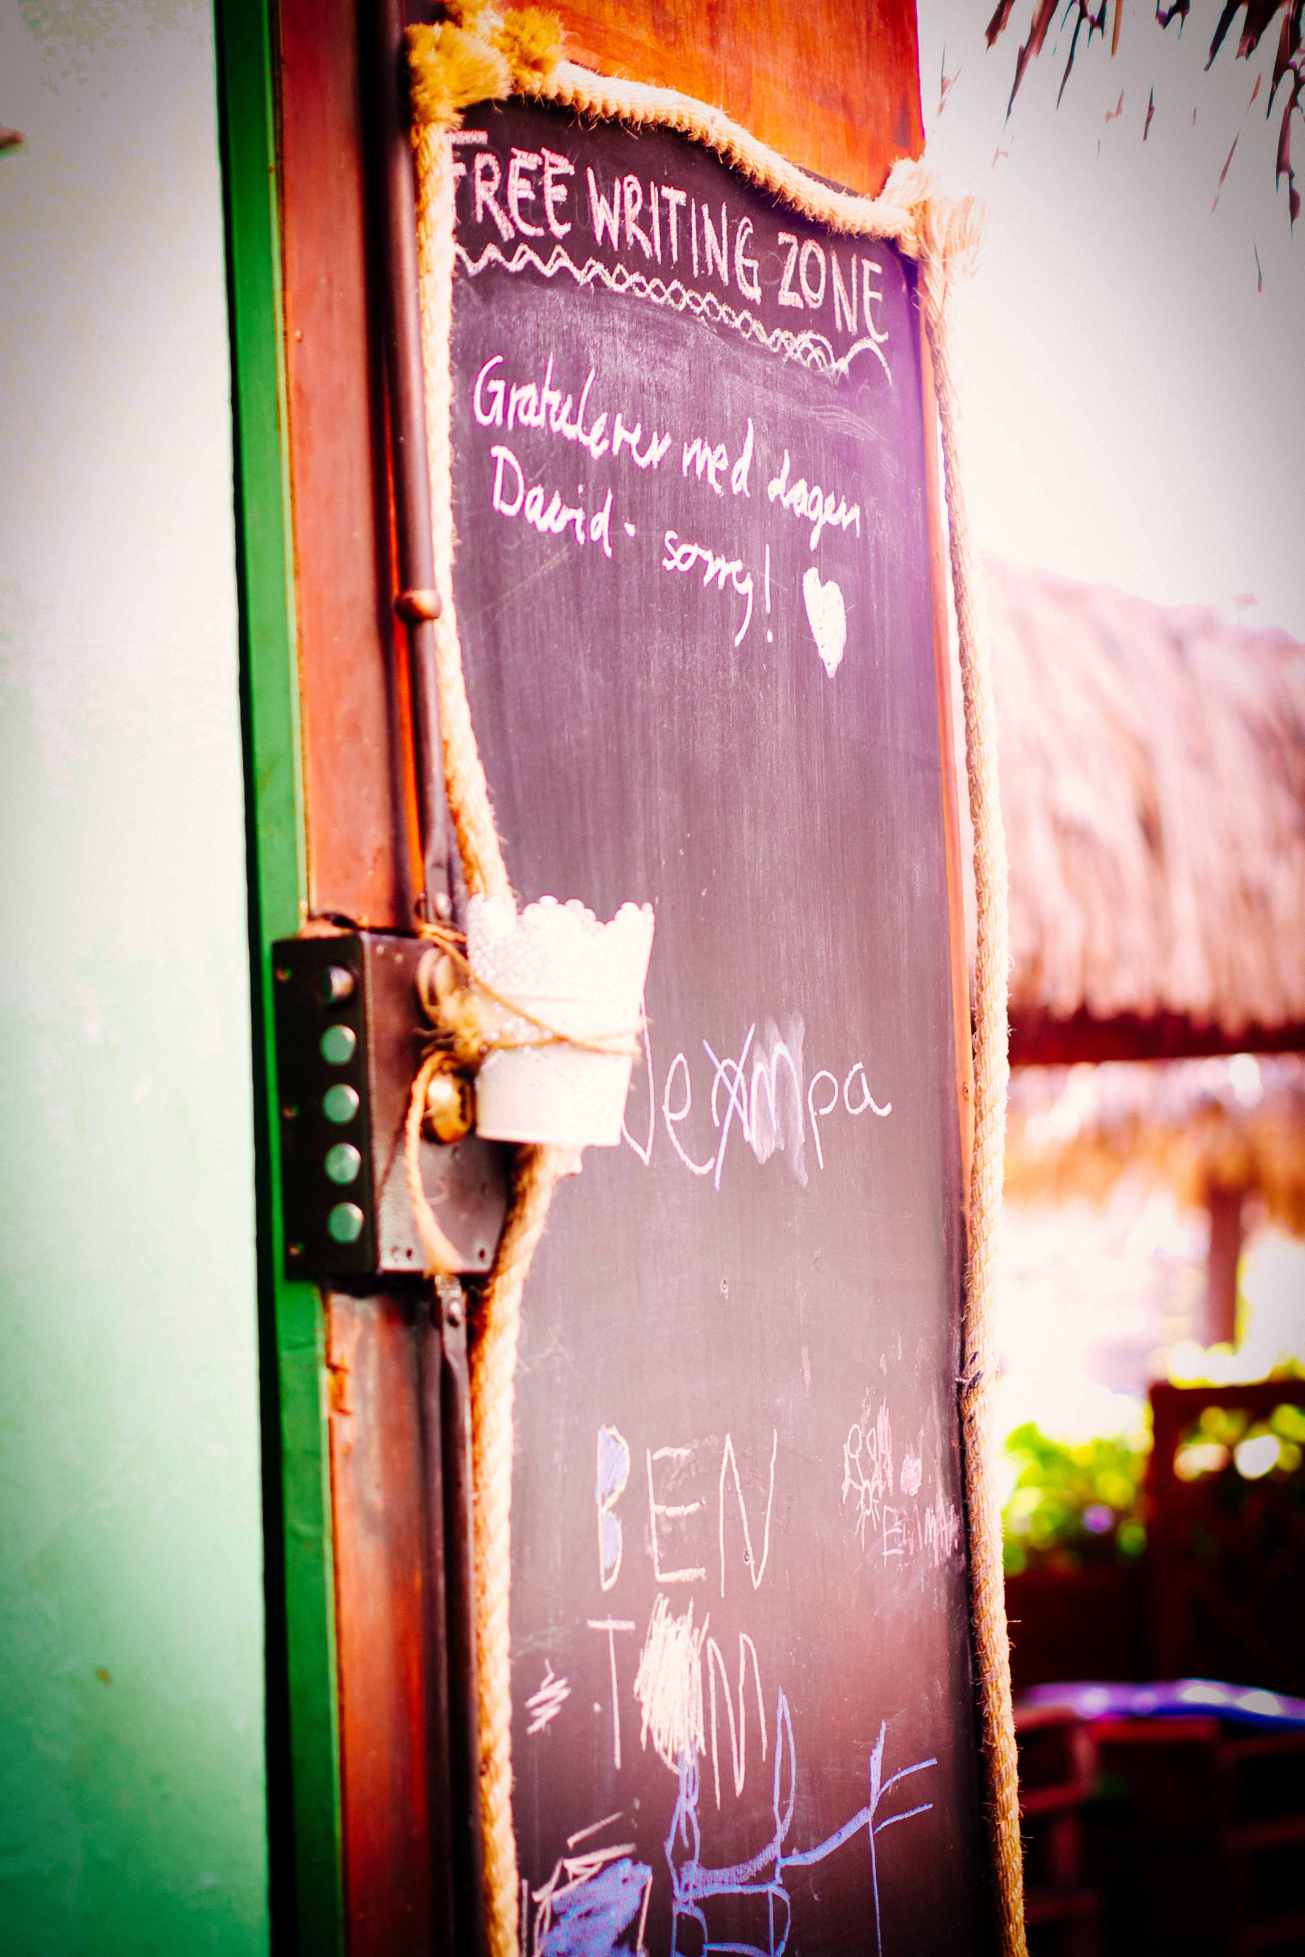 FREE WRITING ZONE
Gratulerer med dagen
David - sorry! ♥
BEN
TOM